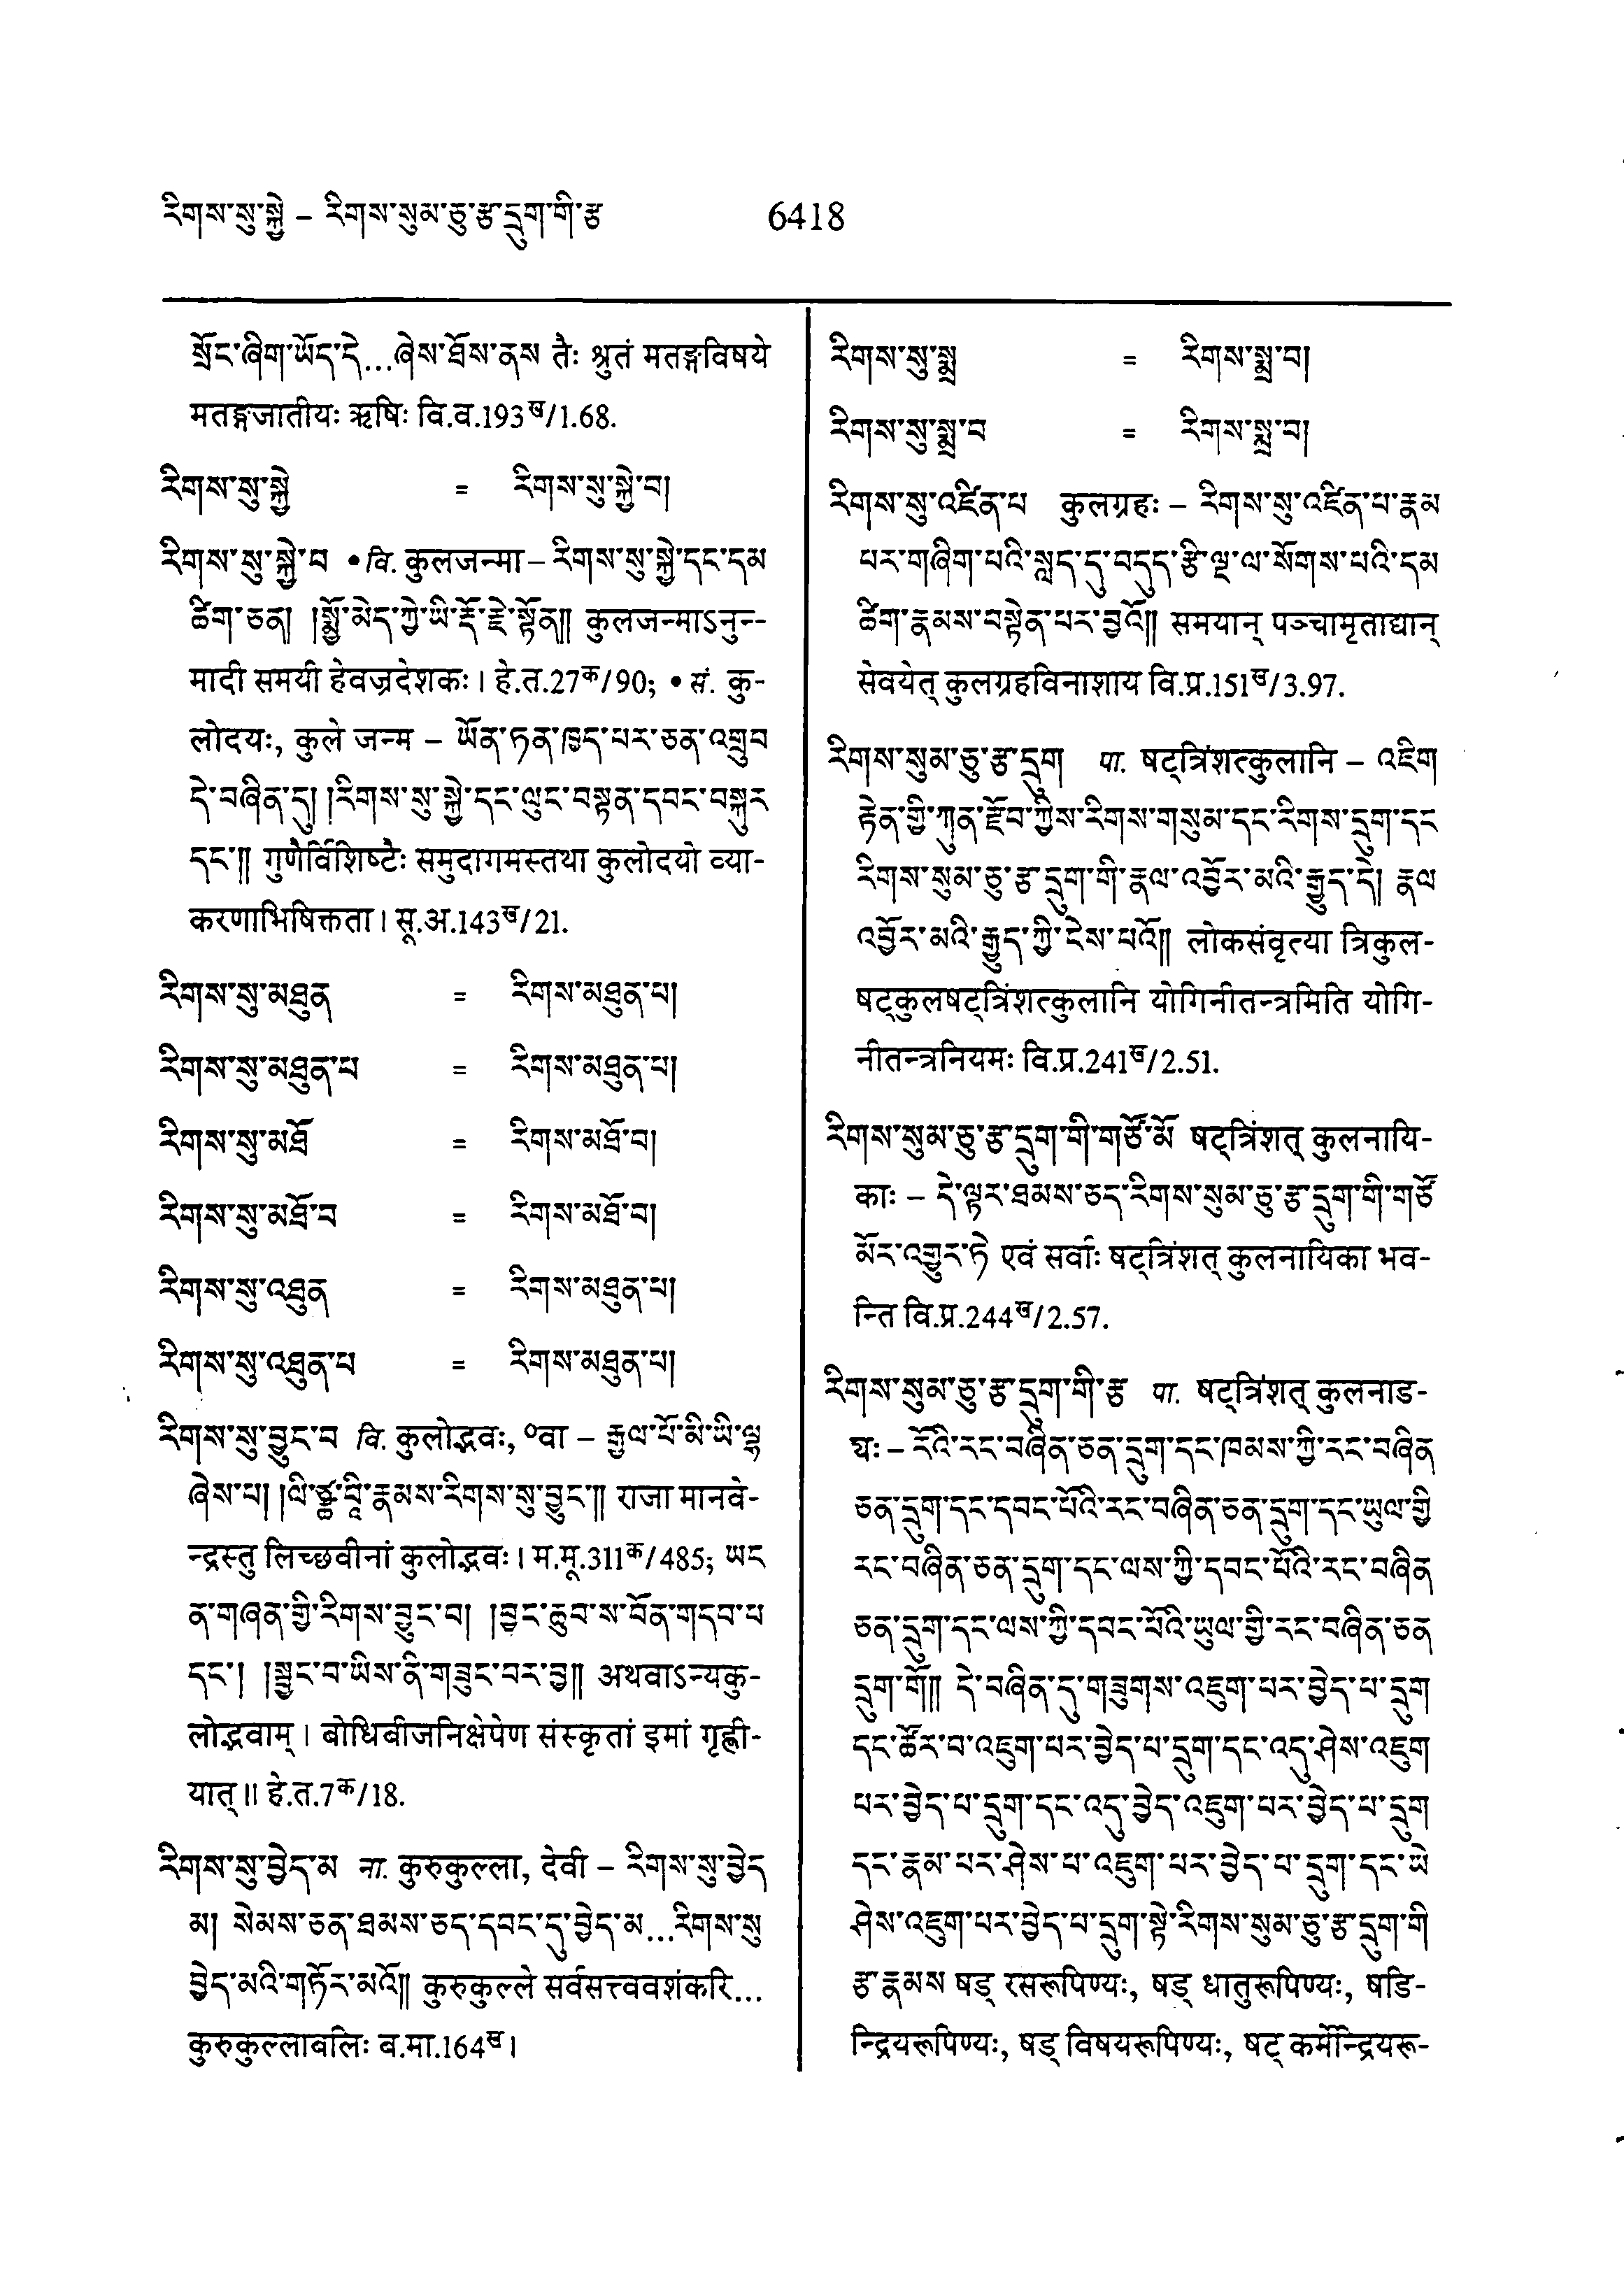 རིགས་སུ་སྐྱེ – རིགས་སུམ་ཅུ་རྩ་དྲུག་གི་རྩ 6418
སྲོང་ཞིག་ཡོད་དེ...ཞེས་ཐོས་ནས तैः श्रुतं मतङ्गविषये
मतङ्गजातीयः ऋषिः वि.व.193ख/1.68.
རིགས་སུ་སྐྱེ = རིགས་སུ་སྐྱེ་བ།
རིགས་སུ་སྐྱེ་བ • वि. कुलजन्मा – རིགས་སུ་སྐྱེ་དང་དམ
ཚིག་ཅན། །སྨྱོ་མེད་ཀྱེ་ཡི་རྡོ་རྗེ་སྟོན༎ कुलजन्माऽनुन्-
मादी समयी हेवज्रदेशकः। हे.त.27क/90; • सं. कु-
लोदयः, कुले जन्म – ཡོན་ཏན་ཁྱད་པར་ཅན་འགྲུབ
དེ་བཞིན་དུ། །རིགས་སུ་སྐྱེ་དང་ལུང་བསྟན་དབང་བསྐུར
དང་༎ गुणैर्विशिष्टैः समुदागमस्तथा कुलोदयो व्या-
करणाभिषिक्तता। सू.अ.143ख/21.
རིགས་སུ་མཐུན = རིགས་མཐུན་པ།
རིགས་སུ་མཐུན་པ = རིགས་མཐུན་པ།
རིགས་སུ་མཐོ = རིགས་མཐོ་བ།
རིགས་སུ་མཐོ་བ = རིགས་མཐོ་བ།
རིགས་སུ་འཐུན = རིགས་མཐུན་པ།
རིགས་སུ་འཐུན་པ = རིགས་མཐུན་པ།
རིགས་སུ་བྱུང་བ वि. कुलोद्भवः, ॰वा – རྒྱལ་པོ་མི་ཡི་ལྷ
ཞེས་པ། །ལི་ཙྪ་བཱི་རྣམས་རིགས་སུ་བྱུང་༎ राजा मानवे-
न्द्रस्तु लिच्छवीनां कुलोद्भवः। म.मू.311क/485; ཡང
ན་གཞན་གྱི་རིགས་བྱུང་བ། །བྱང་ཆུབ་ས་བོན་གདབ་པ
དང་། །སྦྱང་བ་ཡིས་ནི་གཟུང་བར་བྱ༎ अथवाऽन्यकु-
लोद्भवाम्। बोधिबीजनिक्षेपेण संस्कृतां इमां गृह्णी-
यात्॥ हे.त.7क/18.
རིགས་སུ་བྱེད་མ ना. कुरुकुल्ला, देवी – རིགས་སུ་བྱེད
མ། སེམས་ཅན་ཐམས་ཅད་དབང་དུ་བྱེད་མ...རིགས་སུ
བྱེད་མའི་གཏོར་མའོ༎ कुरुकुल्ले सर्वसत्त्ववशंकरि...
कुरुकुल्लाबलिः ब.मा.164ख।
རིགས་སུ་སྨྲ = རིགས་སྨྲ་བ།
རིགས་སུ་སྨྲ་བ = རིགས་སྨྲ་བ།
རིགས་སུ་འཛིན་པ कुलग्रहः – རིགས་སུ་འཛིན་པ་རྣམ
པར་གཞིག་པའི་སླད་དུ་བདུད་རྩི་ལྔ་ལ་སོགས་པའི་དམ
ཚིག་རྣམས་བསྟེན་པར་བྱའོ༎ समयान् पञ्चामृताद्यान्
सेवयेत् कुलग्रहविनाशाय वि.प्र.151ख/3.97.
རིགས་སུམ་ཅུ་རྩ་དྲུག पा. षट्त्रिंशत्कुलानि – འཇིག
རྟེན་གྱི་ཀུན་རྫོབ་ཀྱིས་རིགས་གསུམ་དང་རིགས་དྲུག་དང
རིགས་སུམ་ཅུ་རྩ་དྲུག་གི་རྣལ་འབྱོར་མའི་རྒྱུད་དེ། རྣལ
འབྱོར་མའི་རྒྱུད་ཀྱི་ངེས་པའོ༎ लोकसंवृत्या त्रिकुल-
षट्कुलषट्त्रिंशत्कुलानि योगिनीतन्त्रमिति योगि-
नीतन्त्रनियमः वि.प्र.241ख/2.51.
རིགས་སུམ་ཅུ་རྩ་དྲུག་གི་གཙོ་མོ षट्त्रिंशत् कुलनायि-
काः – དེ་ལྟར་ཐམས་ཅད་རིགས་སུམ་ཅུ་རྩ་དྲུག་གི་གཙོ
མོར་འགྱུར་ཏེ एवं सर्वाः षट्त्रिंशत् कुलनायिका भव-
न्ति वि.प्र.244ख/2.57.
རིགས་སུམ་ཅུ་རྩ་དྲུག་གི་རྩ पा. षट्त्रिंशत् कुलनाड-
यः – རོའི་རང་བཞིན་ཅན་དྲུག་དང་ཁམས་ཀྱི་རང་བཞིན
ཅན་དྲུག་དང་དབང་པོའི་རང་བཞིན་ཅན་དྲུག་དང་ཡུལ་གྱི
རང་བཞིན་ཅན་དྲུག་དང་ལས་ཀྱི་དབང་པོའི་རང་བཞིན
ཅན་དྲུག་དང་ལས་ཀྱི་དབང་པོའི་ཡུལ་གྱི་རང་བཞིན་ཅན
དྲུག་གོ༎ དེ་བཞིན་དུ་གཟུགས་འཇུག་པར་བྱེད་པ་དྲུག
དང་ཚོར་བ་འཇུག་པར་བྱེད་པ་དྲུག་དང་འདུ་ཤེས་འཇུག
པར་བྱེད་པ་དྲུག་དང་འདུ་བྱེད་འཇུག་པར་བྱེད་པ་དྲུག
དང་རྣམ་པར་ཤེས་པ་འཇུག་པར་བྱེད་པ་དྲུག་དང་ཡེ
ཤེས་འཇུག་པར་བྱེད་པ་དྲུག་སྟེ་རིགས་སུམ་ཅུ་རྩ་དྲུག་གི
རྩ་རྣམས षड् रसरूपिण्यः, षड् धातुरूपिण्यः, षडि-
न्द्रियरूपिण्यः, षड् विषयरूपिण्यः, षट् कर्मेन्द्रियरू-